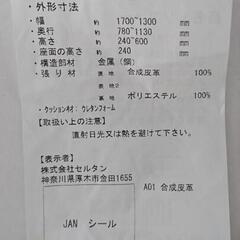 ・外形寸法
・幅 約 1700~1300 mm
・奥行 約 780~1130 mm
・高さ 約 240~600 mm
・座面の高さ 約 240 mm
・構造部材 金属(鋼)
・張り材 裏地 合成皮革 100%
表地2
裏地 ポリエステル 100%
・クッション材:ウレタンフォーム
【取扱い上の注意】
直射日光又は熱を避けて下さい。
【表示者】
株式会社セルタン
神奈川県厚木市金田1655
A01 合成皮革
JAN シール